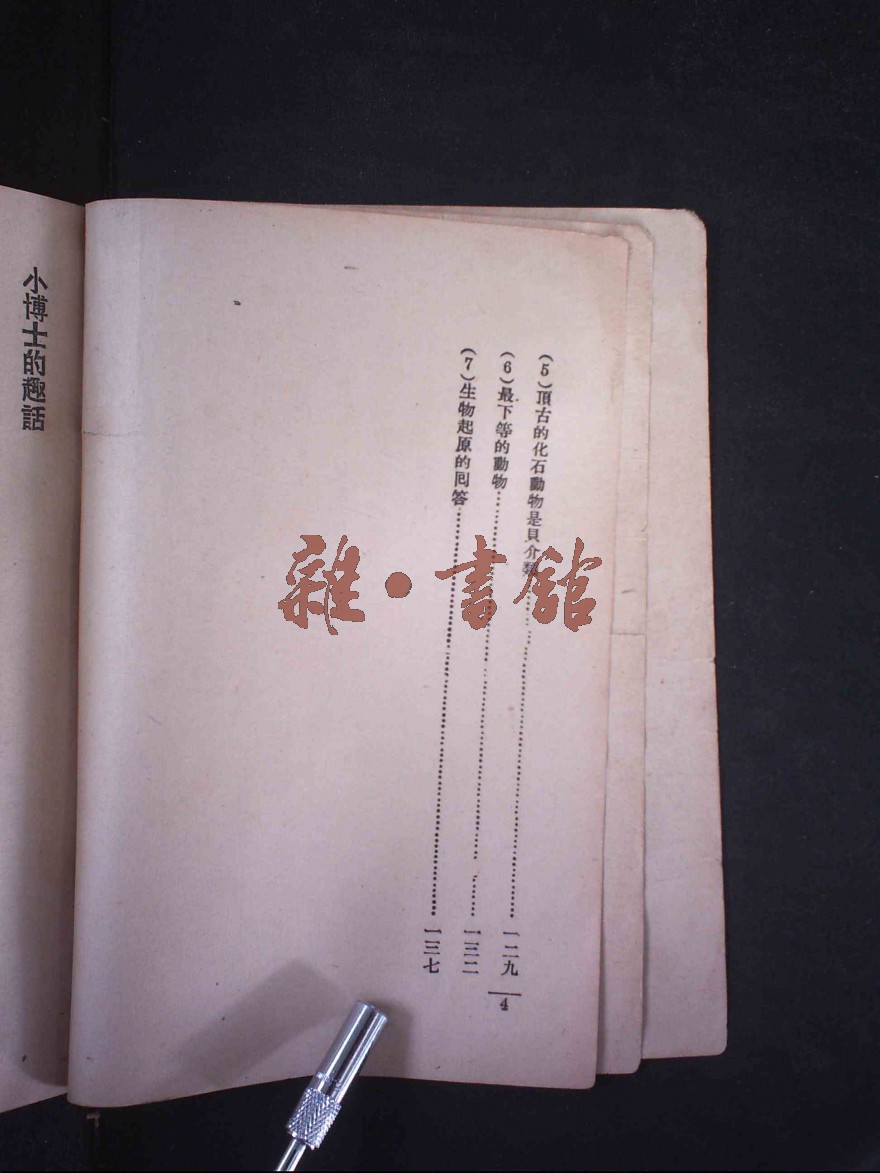 (5)頂古的化石動物是貝介類……一二九
(6)最下等的動物……一三二
(7)生物起原的回答……一三七
4
小博士的趣話
雜·書館